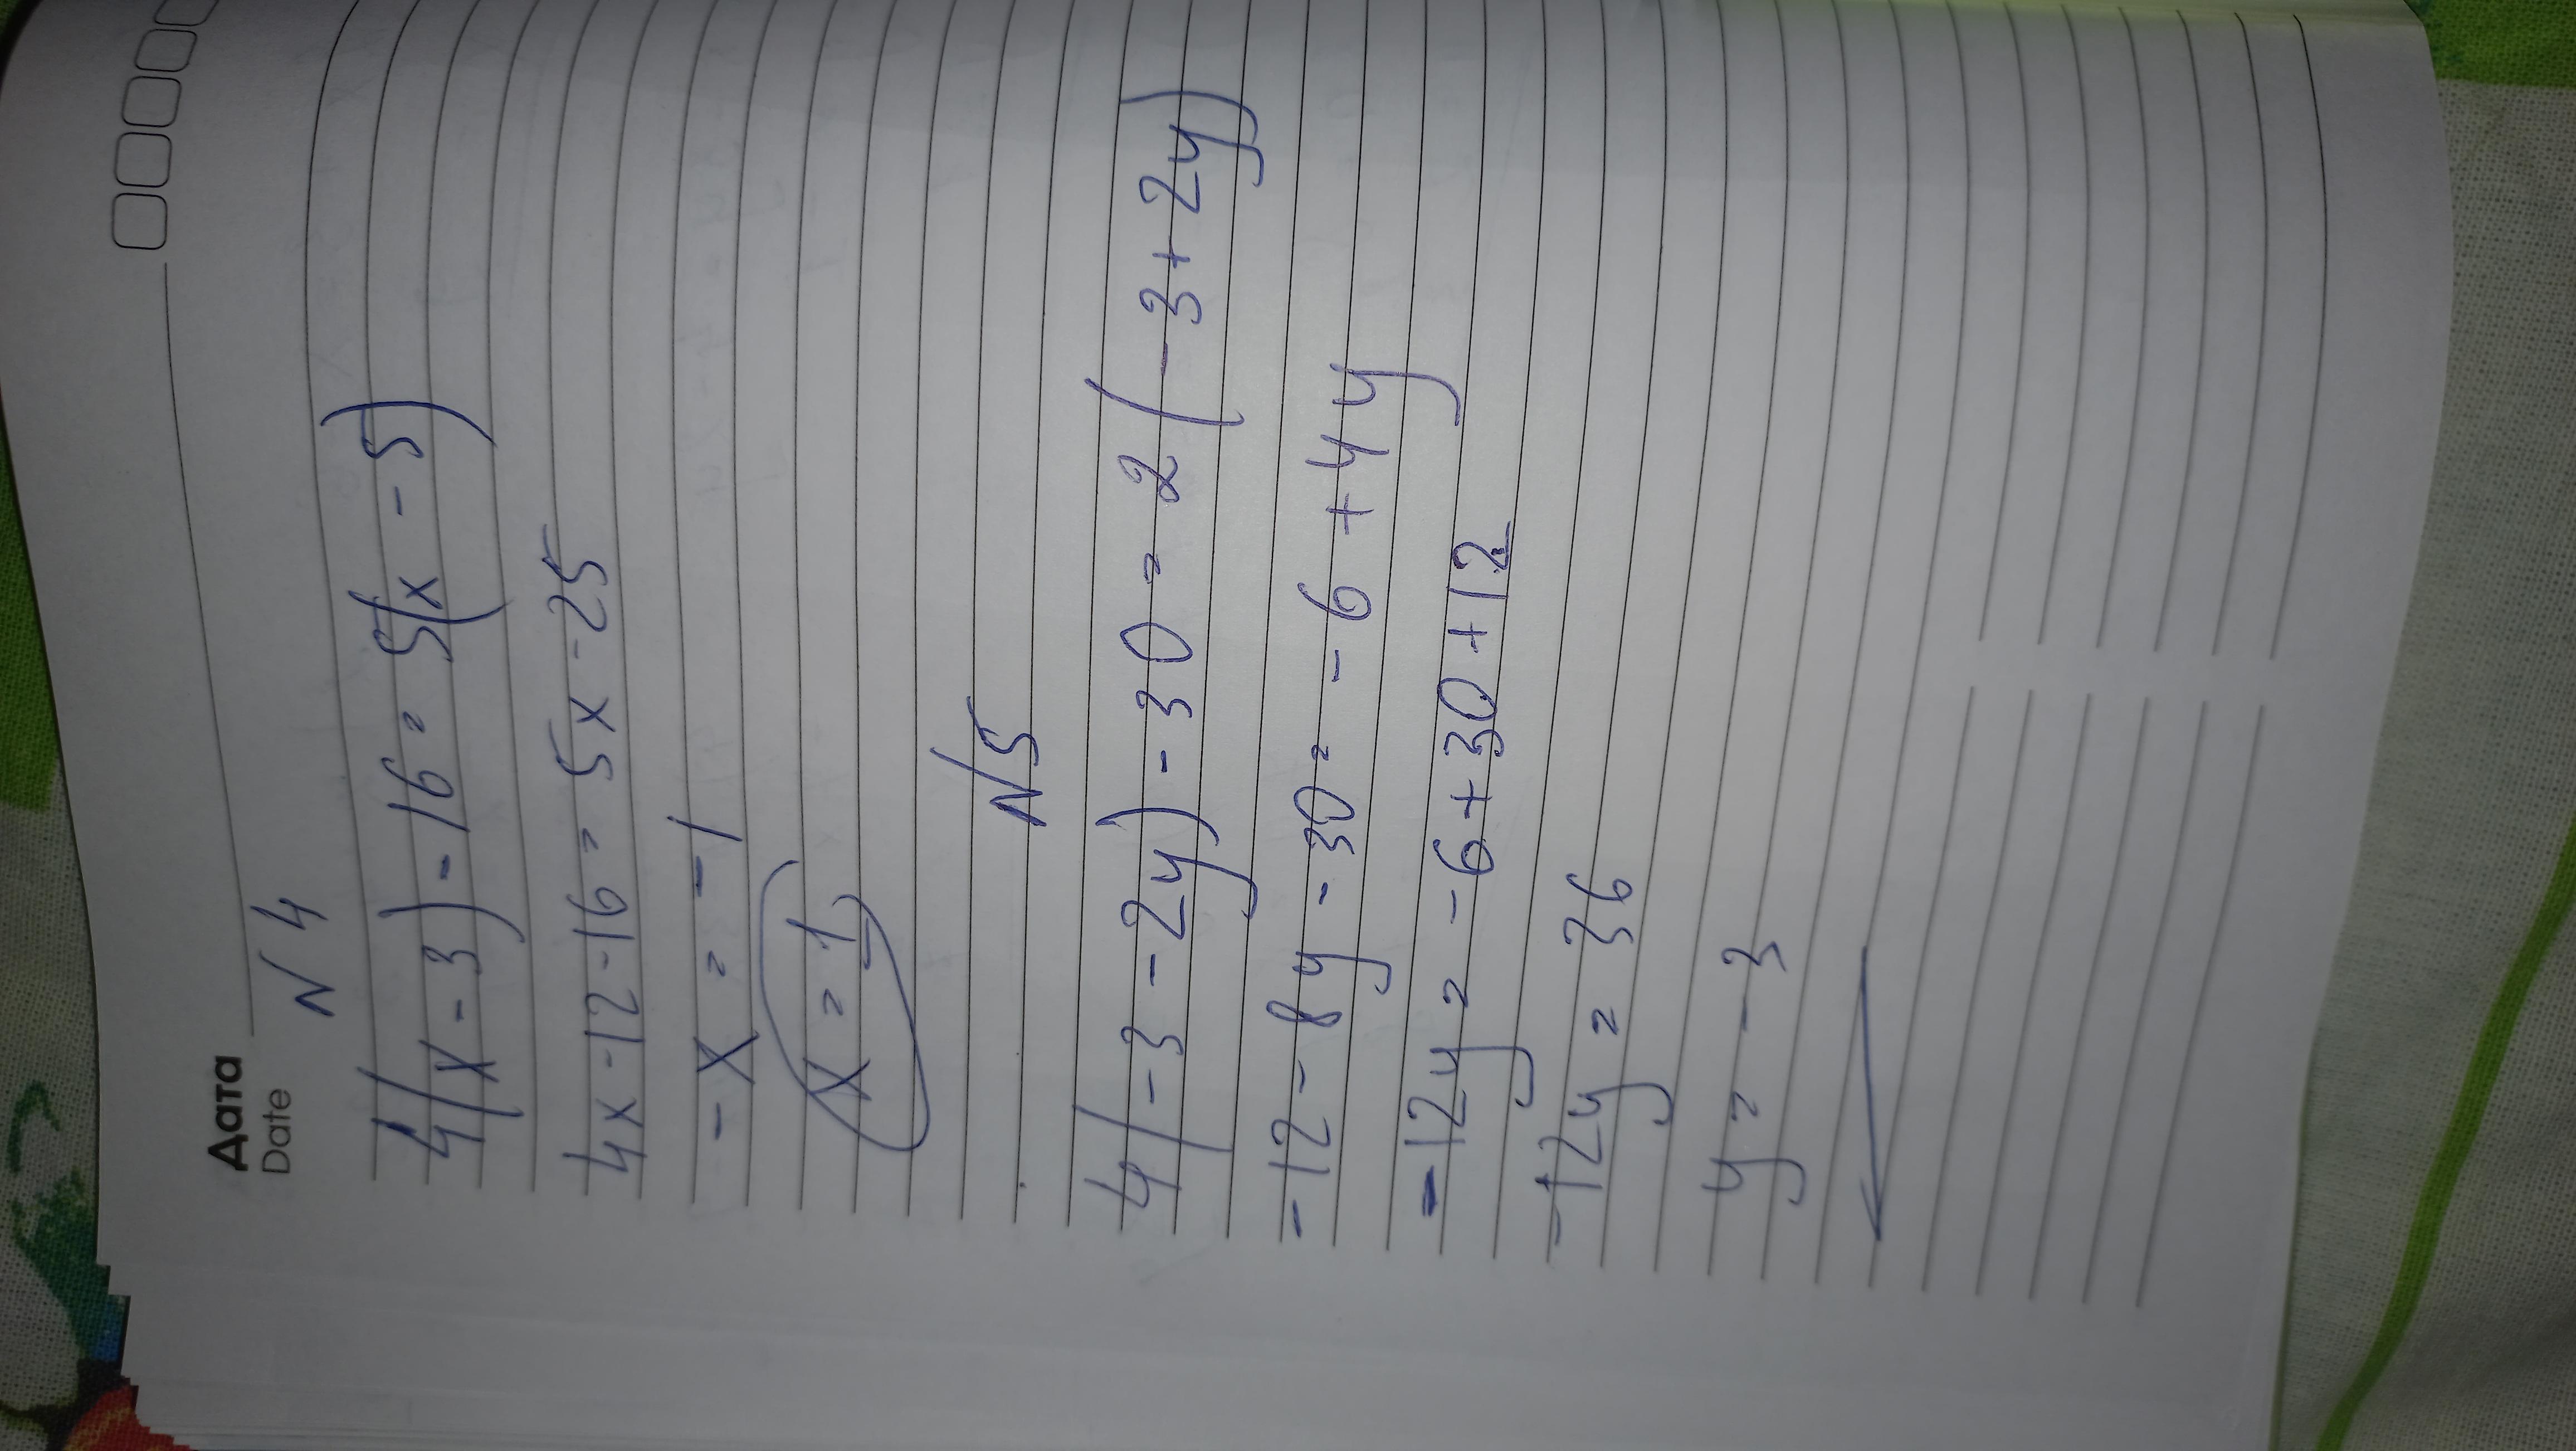 Дата
Date
N 4
4(x-3)-16=5(x-5)
4x-12-16=5x-25
-x=-1
x=1
N5
4(-3-2y)-30=2(-3+2y)
-12-8y-30=-6+4y
-12y=-6+30+12
-12y=36
y=-3